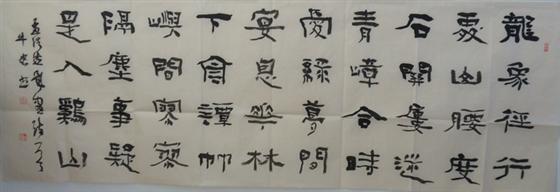 龍象徑行
處山腰度
石關屢迷
青嶂合時
愛綠蘿閒
宴息華林
下高譚竹
嶼間寥寥
隔塵事疑
是入鷄山
孟浩然